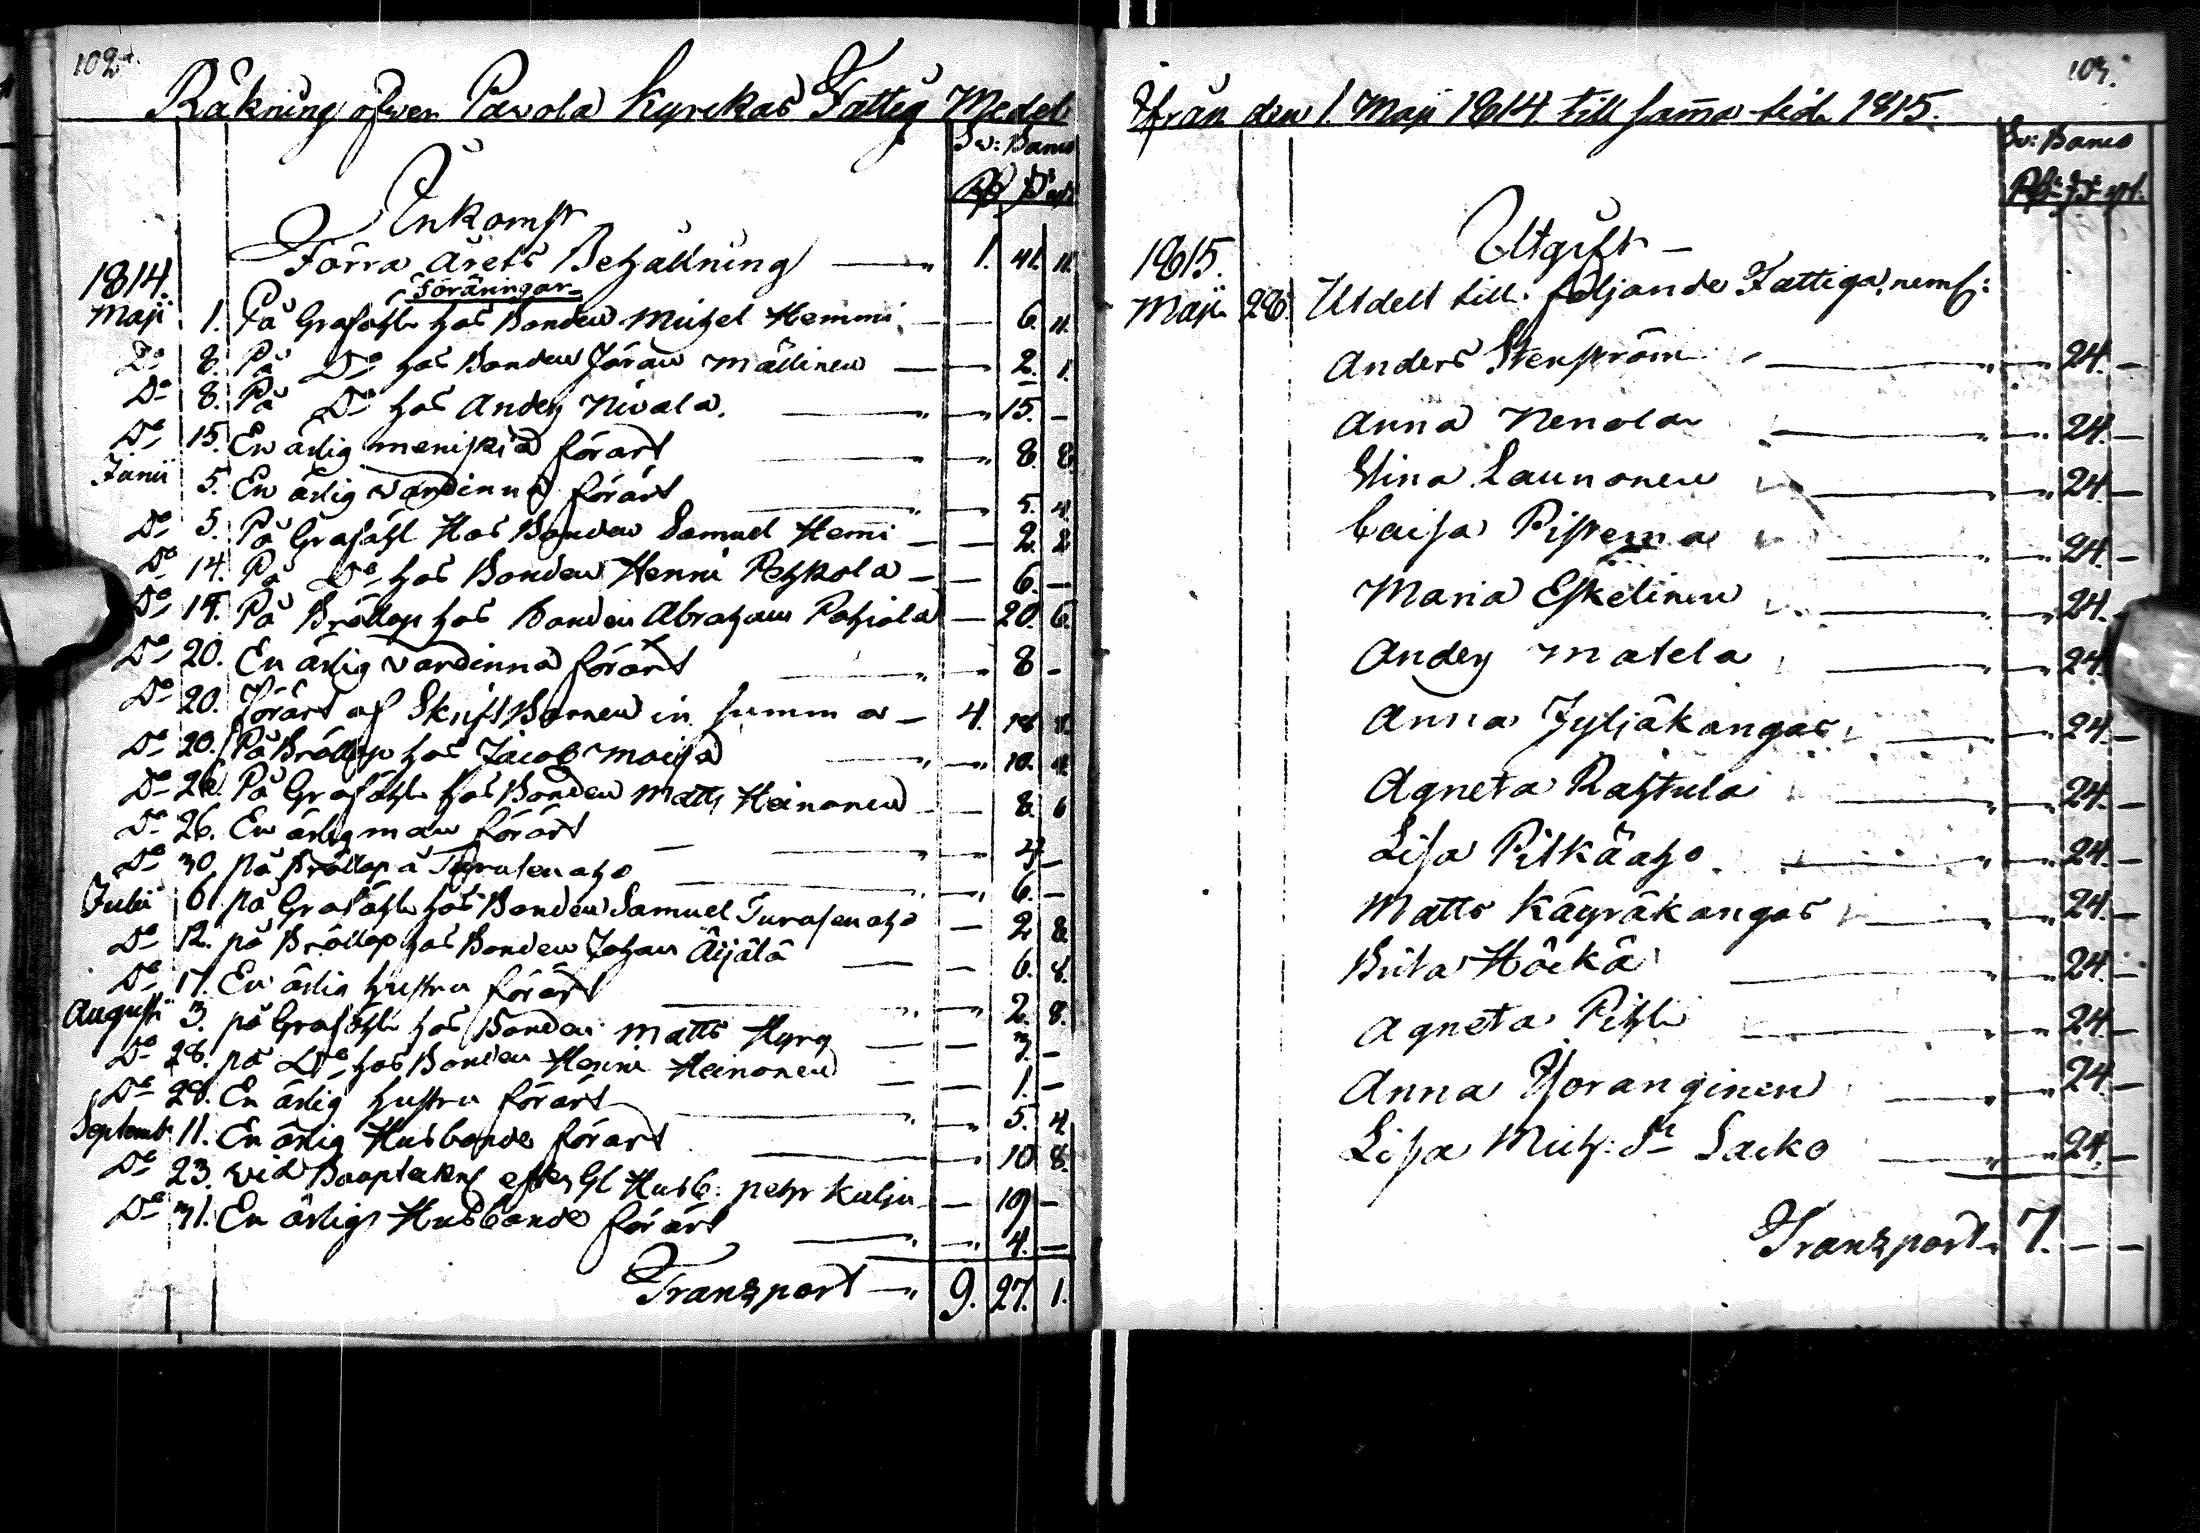 102.
Räkning öfwer Pavola Kyrckas Fattig Medel
Sv: Banco
Rd ß rst
Inkomst
Förra Årets Behållning — 1. 41. 11.
1814.
Föräringar
Maji 1. På Grafööhl hos Bonden Michel Hemmi — 6. 11.
Do 8. På Do hos Bonden Jöran Mällinen — 2. 1.
Do 8. På Do hos Anders Nivala. — 15. —
Do 15. En ärlig meniskia förärt — 8. 8.
Junii 5. En ärlig värdinna förärt — 5. 4.
Do 5. På Grafööhl Hos Bonden Samuel Hemi — 2. 2
Do 14. På Do hos Bonden Henric Pehkola — 6. —
Do 19. På Bröllop hos Bonden Abraham Pohjola — 20. 6.
Do 20. En ärlig värdinna förärt — 8 —
Do 20. förärt af Skrift Barnen in summa — 4. 18 8.
Do 20. På Bröllop hos Jacob Maija — 10. 4.
Do 26. På Grafööhl hos Bonden Matts Heinonen — 8. 6
Do 26. En ärlig man förärt — 4 —
Do 30. på Bröllop å Turusenaho — 6. —
Julii 6. på Grafööhl hos Bonden Samuel Turusenaho — 2 8.
Do 12. på Bröllop hos Bonden Johan Äijälä — 6. 8.
Do 17. En ärlig hustru förärt — 2. 8.
Augusti 3. på Grafööhl hos Bonden Matts Hyry — 3. —
Do 28. på Do hos Bonden Henric Heinonen — 1. —
Do 28. En ärlig hustru förärt — 5. 4.
Septemb: 11. En ärlig Husbonde förärt — 10 8.
Do 23. vid Boupteckn: efter Gl Husb: Pehr Kulju — 19 —
Do 31. En ärlig Husbonde förärt — 4. —
Transport — 9. 27. 1.
103.
Ifrån den 1 Maji 1814 till sama tid 1815.
Sv: Banco
Rd ß rst.
Utgift —
1815.
Maji 28. Utdelt till följande Fattiga, neml:
Anders Stenström — 24. —
Anna Nenola — 24. —
Stina Launonen — 24. —
Caisa Pistema — 24. —
Maria Eskelinen — 24. —
Anders Matela — 24.
Anna Jyljäkangas — 24. —
Agneta Rahtula — 24. —
Lisa Pitkäaho — 24. —
Matts Käyräkangas — 24. —
Brita Höckä — 24. —
Agneta Pihl — 24. —
Anna Yoranginen — 24. —
Lisa Mich: dr Sarko — 24. —
Transport 7. — —